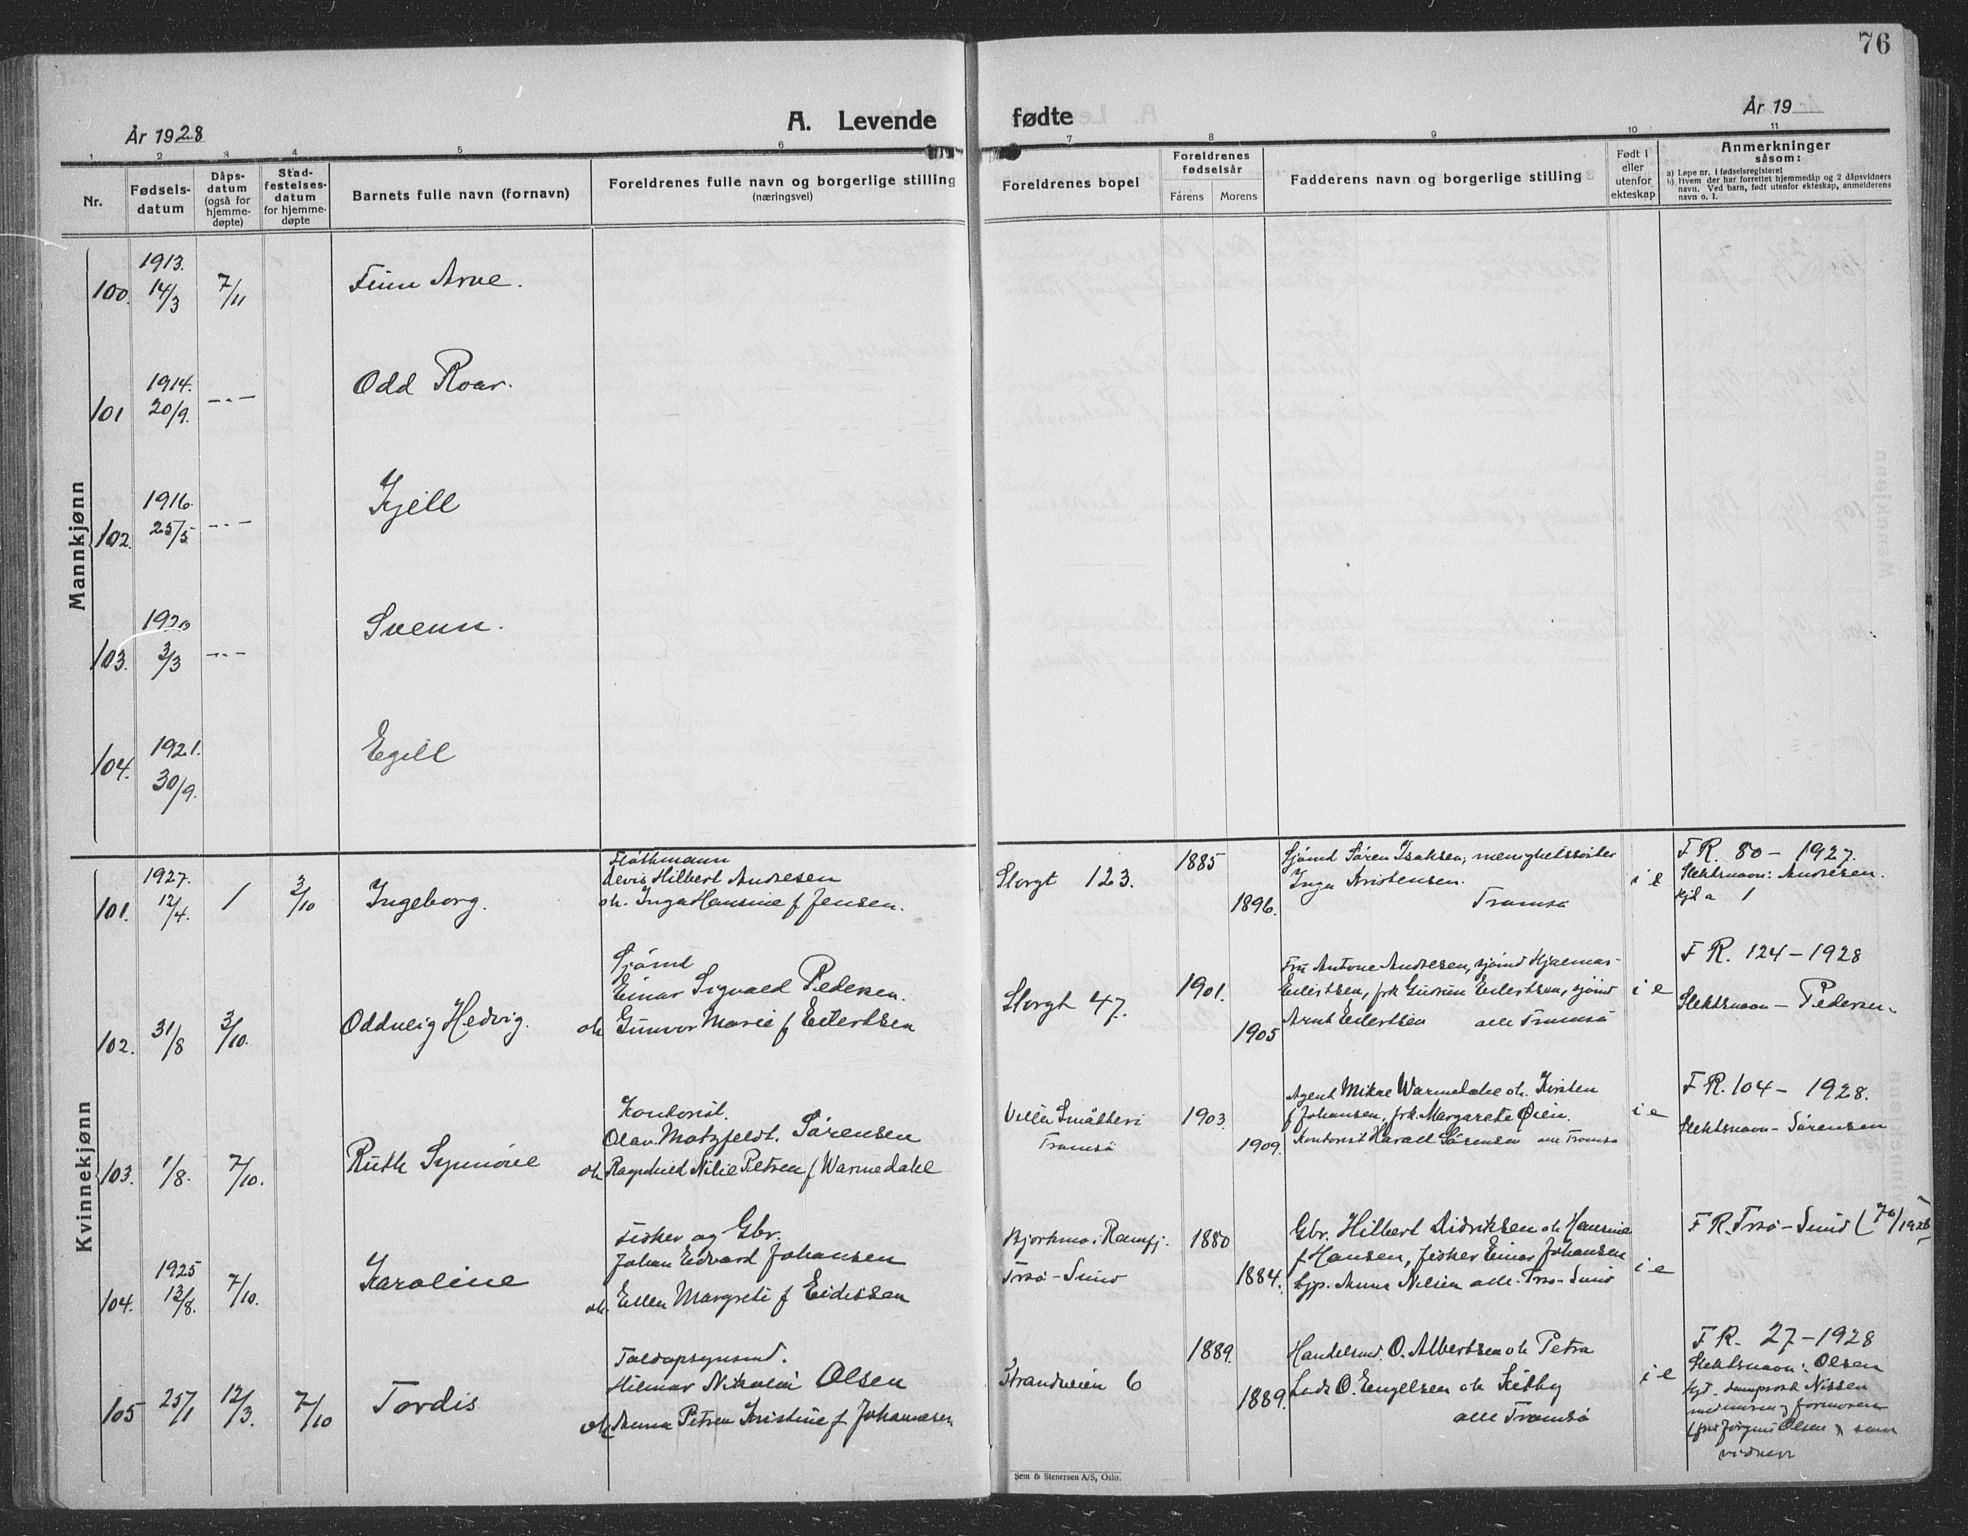 76
År 1928
A. Levende fødte
År 19
1 2 3 4 5 6 7 8 9 10 11
Nr.
Fødsels-
datum
Dåps-
datum
(også for
hjemme-
døpte)
Stad-
festelses-
datum
for hjemme-
døpte
Barnets fulle navn (fornavn)
Foreldrenes fulle navn og borgerlige stilling
(næringsvei)
Foreldrenes bopel
Foreldrenes
fødselsår
Farens
Morens
Fadderens navn og borgerlige stilling
Født i
eller
utenfor
ekteskap
Anmerkninger
såsom:
a) Løpe nr. i fødselsregisteret
b) Hvem der har forrettet hjemmedåp og 2 dåpsvidners
navn. Ved barn, født utenfor ekteskap, anmelderens
navn o. l.
Mannkjønn
100. 1913. 14/3 7/11 Finn Arne.
101 1914. 20/9. -"- Odd Roar.
102. 1916. 25/5 -"- Kjell
103. 1920 3/3 -"- Svenn.
104. 1921. 30/9. Egill
Kvinnekjønn
101. 1927. 12/4. 1 3/10 Ingeborg.
Levis Hilbert Andresen
oh. Inga Hansine f Jensen.
Storgt 123. 1885 1896.
Sjømd Søren Isaksen, menighetssøster
Inga Kristensen.
Tromsø
i e
F R. 80 - 1927.
Slektsnavn: Andresen.
102. 31/8 3/10. Oddveig Hedvig.
Sjømd
Einar Sigvald Pedersen.
oh Gunvor Marie f Eilertsen
Storgt 47. 1901. 1905
Fru Antone Andresen, sjømd Hjalmar
Eilertsen, frk Gudrun Eilertsen, sjømd
Arnt Eilertsen alle Tromsø
i e
F R. 124 - 1928
Slektsnavn - Pedersen.
103. 1/8. 7/10. Ruth Synnøve
Kontorist.
Olav Motzfeldt Sørensen
oh Ragnhild Nilie Petrea f Warmedahl
Villa
Tromsø
1903. 1909.
Agent Mikal Warmedahl oh. Kirsten
f Johansen, frk. Margarete Øien.
Kontorist Harald Sørensen alle Tromsø
i e
F R. 104 - 1928.
Slektsnavn - Sørensen
104. 1925 13/8. 7/10. Karoline
Fisker og Gbr.
Johan Edvard Johansen
oh. Ellen Margrete f Eidissen
Bjørkmo i Ramfj.
Trsø-Sund
1880 1884.
Gbr. Hilbert Didriksen oh Hansine
f Hansen, fisker Einar Johansen
Gjp. Anna Nilsen alle Trsø-Sund
i e
F R. Trsø-Sund (76/1925)
105 25/1 12/3. 7/10 Tordis
Toldopsynsmd.
Hilmar Nikolai Olsen
oh Anna Petrea Kristine f Johannesen
Strandveien 6 1889. 1889.
Handelsmd. O. Albertsen oh Petra
Lods O. Engelsen oh Selby
alle Tromsø
i e
F R. 27 - 1928
Slektsnavn: Olsen
Nissen
Olsen som
vidner
Sem & Stenersen A/S, Oslo.